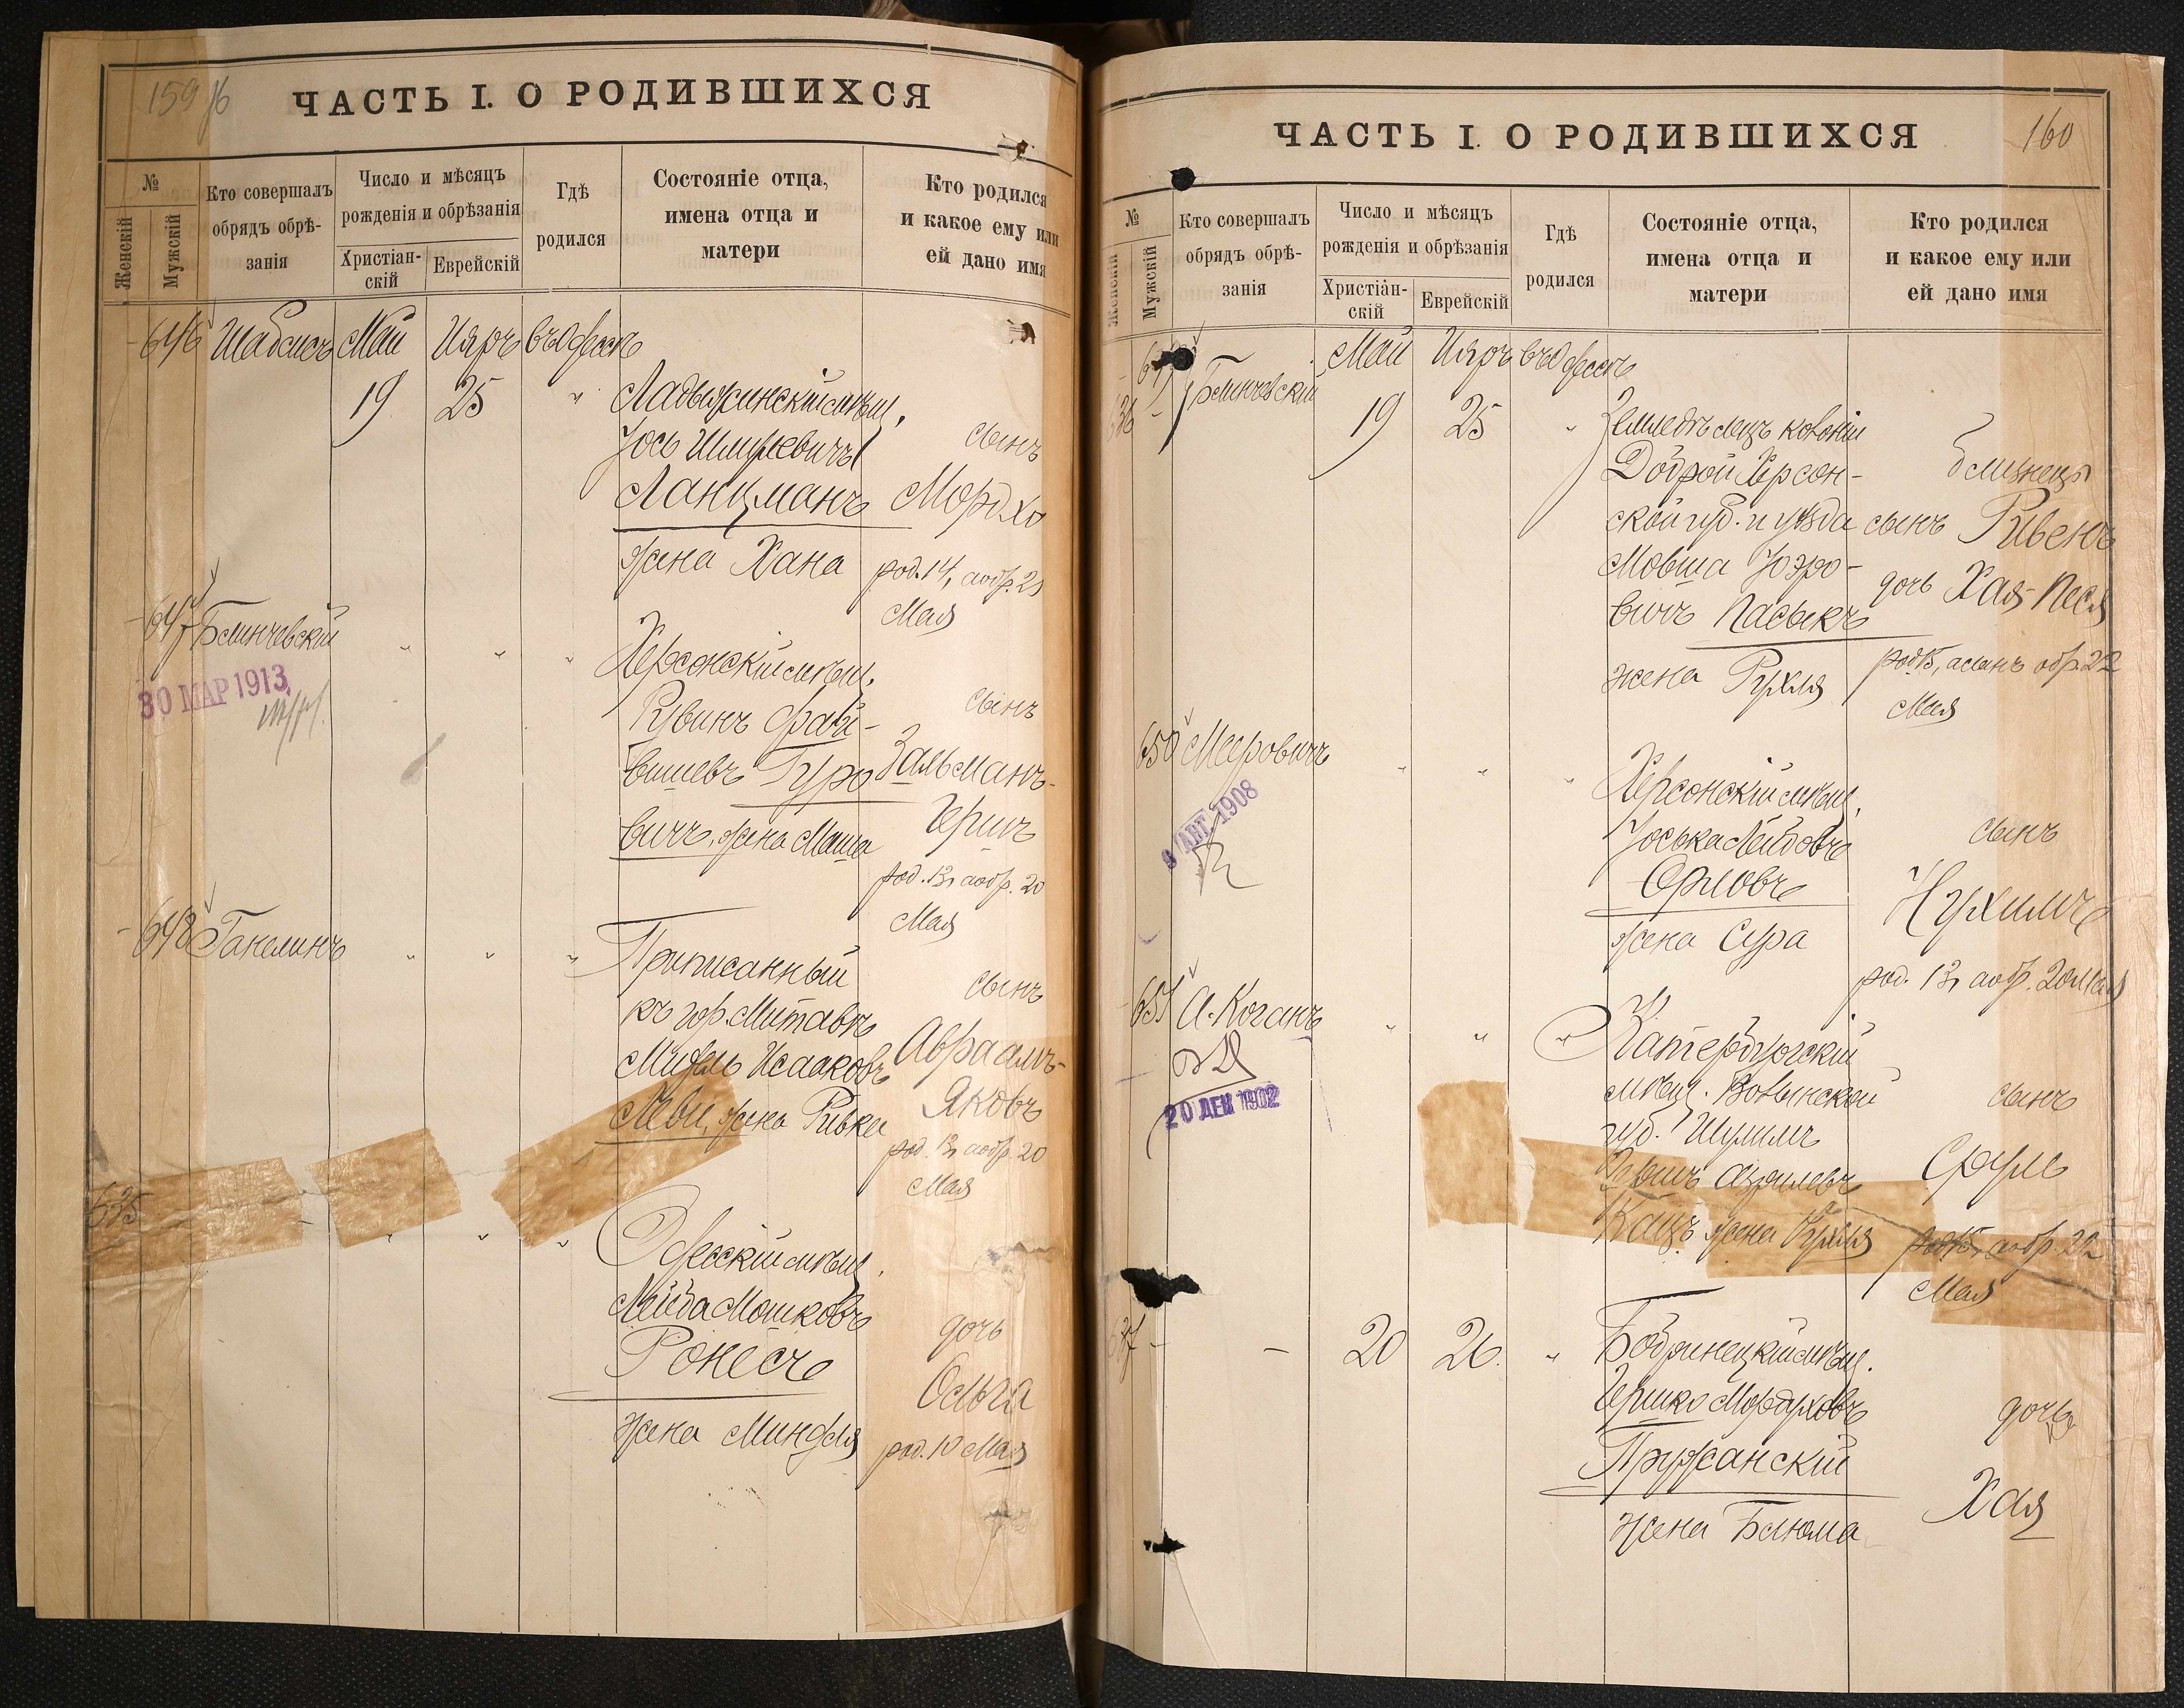 159 об
ЧАСТЬ I. О РОДИВШИХСЯ
№
Женскій
Мужскій
Кто совершалъ
обрядъ обрѣ-
занія
Число и мѣсяцъ
рожденія и обрѣзанія
Христіан-
скій
Еврейскій
Гдѣ
родился
Состояніе отца,
имена отца и
матери
Кто родился
и какое ему или
ей дано имя
646 Шабсисъ Май Іяръ въ Одессѣ
19 25 " Ладыжинскій мѣщ.
Іось Шмулевичъ сынъ
Ланцманъ Мордко
жена Хана род. 14, а обр. 21
Мая
647 Блинчевскій " " " Херсонскій мѣщ.
30 МАР 1913
Рувинъ Фай- сынъ
вишевъ Гуро Зальманъ-
вичъ, жена Маша Гершъ
род. 13, а обр. 20
Мая
648 Ганелинъ " " " Приписанный
къ гор. Митавѣ сынъ
Исааковъ Авраамъ-
Леви, жена Ривка Яковъ
род. 13, а обр. 20
Мая
635 - " " " Одесскій мѣщ.
Лейба Мошковъ дочь
Ронесъ Ольга
жена Миндля род. 10 Мая
160
ЧАСТЬ I. О РОДИВШИХСЯ
№
Женскій
Мужскій
Кто совершалъ
обрядъ обрѣ-
занія
Число и мѣсяцъ
рожденія и обрѣзанія
Христіан-
скій
Еврейскій
Гдѣ
родился
Состояніе отца,
имена отца и
матери
Кто родился
и какое ему или
ей дано имя
649 Блинчевскій Май Іяръ въ Одессѣ
636 - 19 25 " Земледѣлецъ колоніи
Доброй Херсон- близнецы
ской губ. и уѣзда сынъ Рувенъ
Мовша дочь Хая-Песя
вичъ Пасыкъ
жена Рухля род. 15, а сынъ обр. 22
Мая
650 Мееровичъ " " " Херсонскій мѣщ.
9 АВГ. 1908
Іоська Лейбовъ сынъ
Орловъ Нухимъ
жена Сура
род. 13, а обр. 20 Мая
651 А. Коганъ " " " Катербургскій
20 ДЕК 1902
мѣщ. Волынской сынъ
губ. Шулимъ
Гершъ Азрилевъ Сруль
Кацъ жена Рухля род. 15, а обр. 22
Мая
637 - - 20 26. " Бобринецкій мѣщ.
Гершко Мордуховъ дочь
Пружанскій
жена Блюма Хая